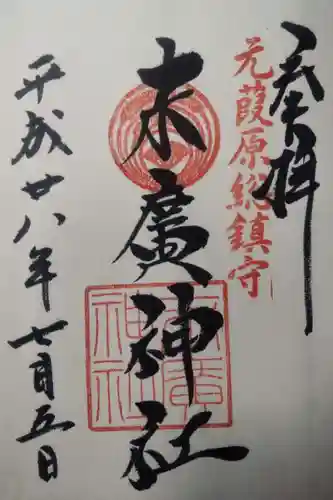 奉拝
元葭原総鎮守
末廣神社
末廣
神社
平成廿八年七月五日